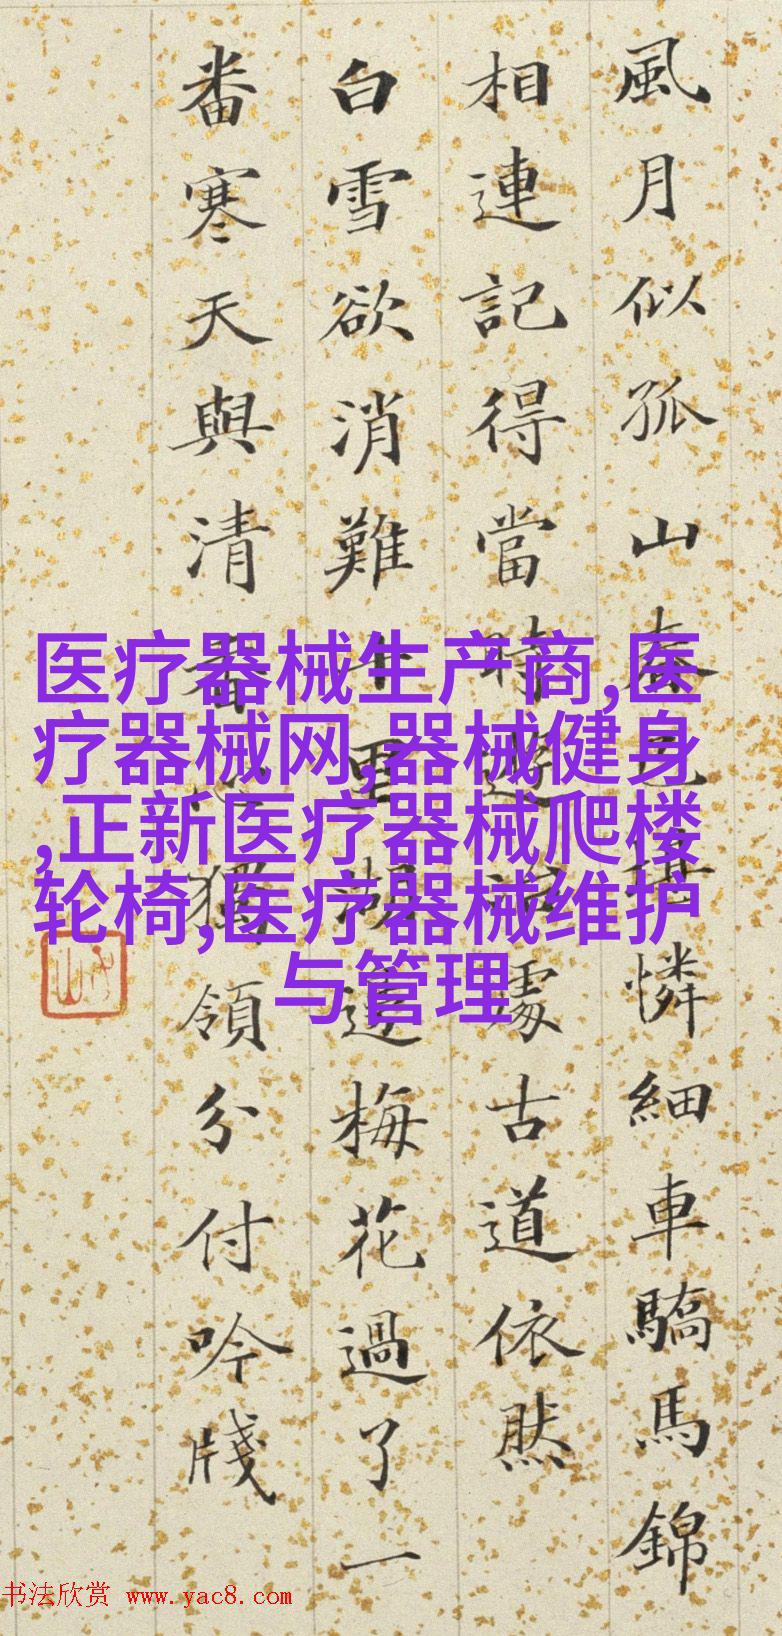 風月似孤山春色堪憐細車驕馬錦
相連記得當時遊處古道依然
白雪欲消難十里湖邊梅花過了一
番寒天與清香心獨領分付吟牋
医疗器械生产商,医
疗器械网,器械健身
,正新医疗器械爬楼
轮椅,医疗器械维护
与管理
书法欣赏 www.yac8.com